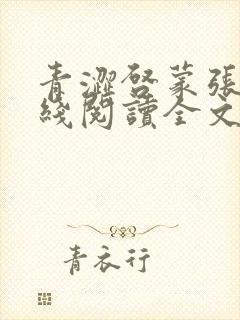 青澀啓蒙張
綫閱讀全文
青衣行